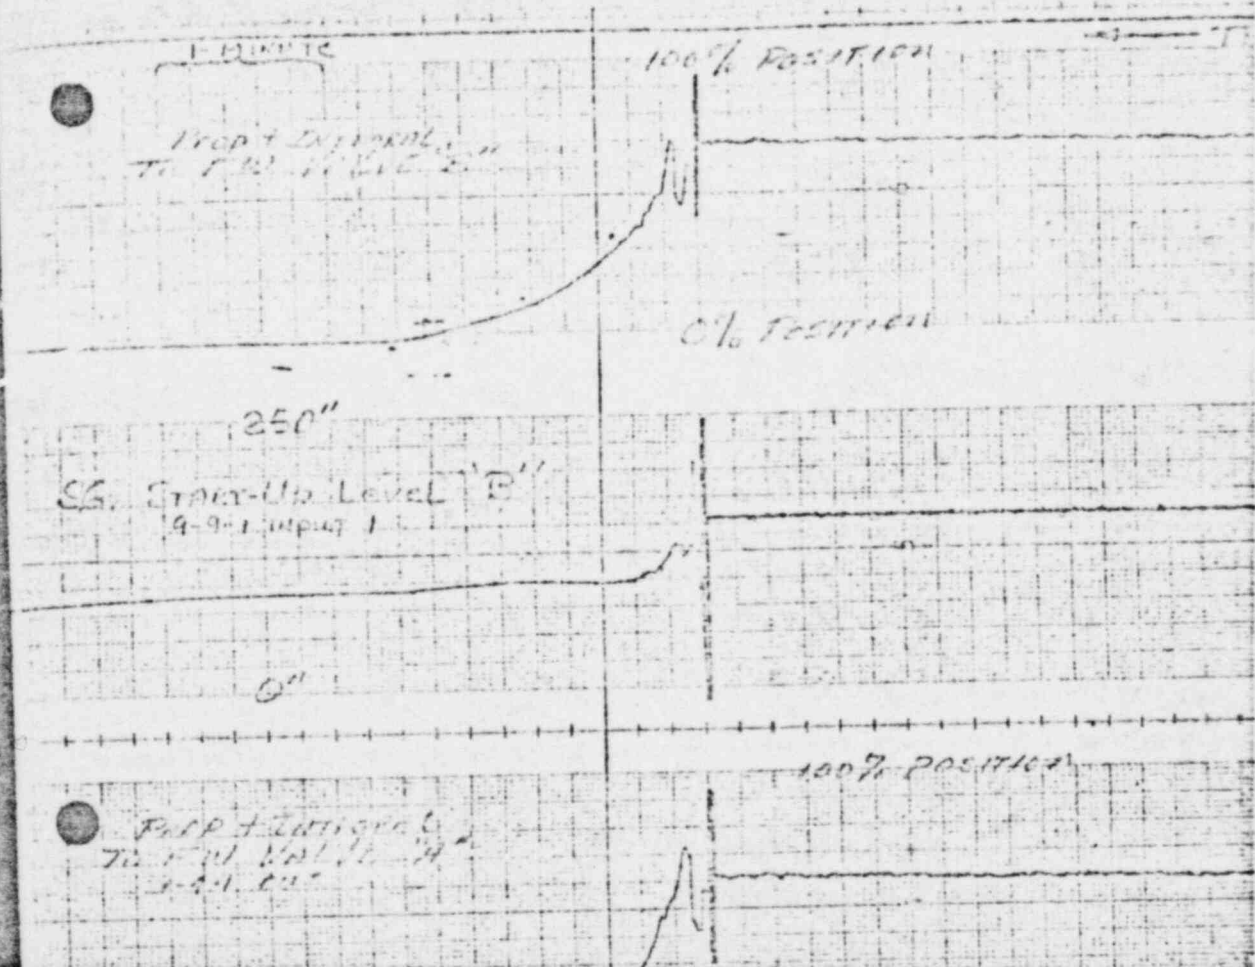 1 MINUTE
100% POSITION
Prop + INTEGRAL
TO F.W. VALVE
0% POSITION
250"
SG. START-UP LEVEL "B"
9-9-1 INPUT 1
0"
100% POSITION
PROP + INTEGRAL
TO F.W. VALVE "A"